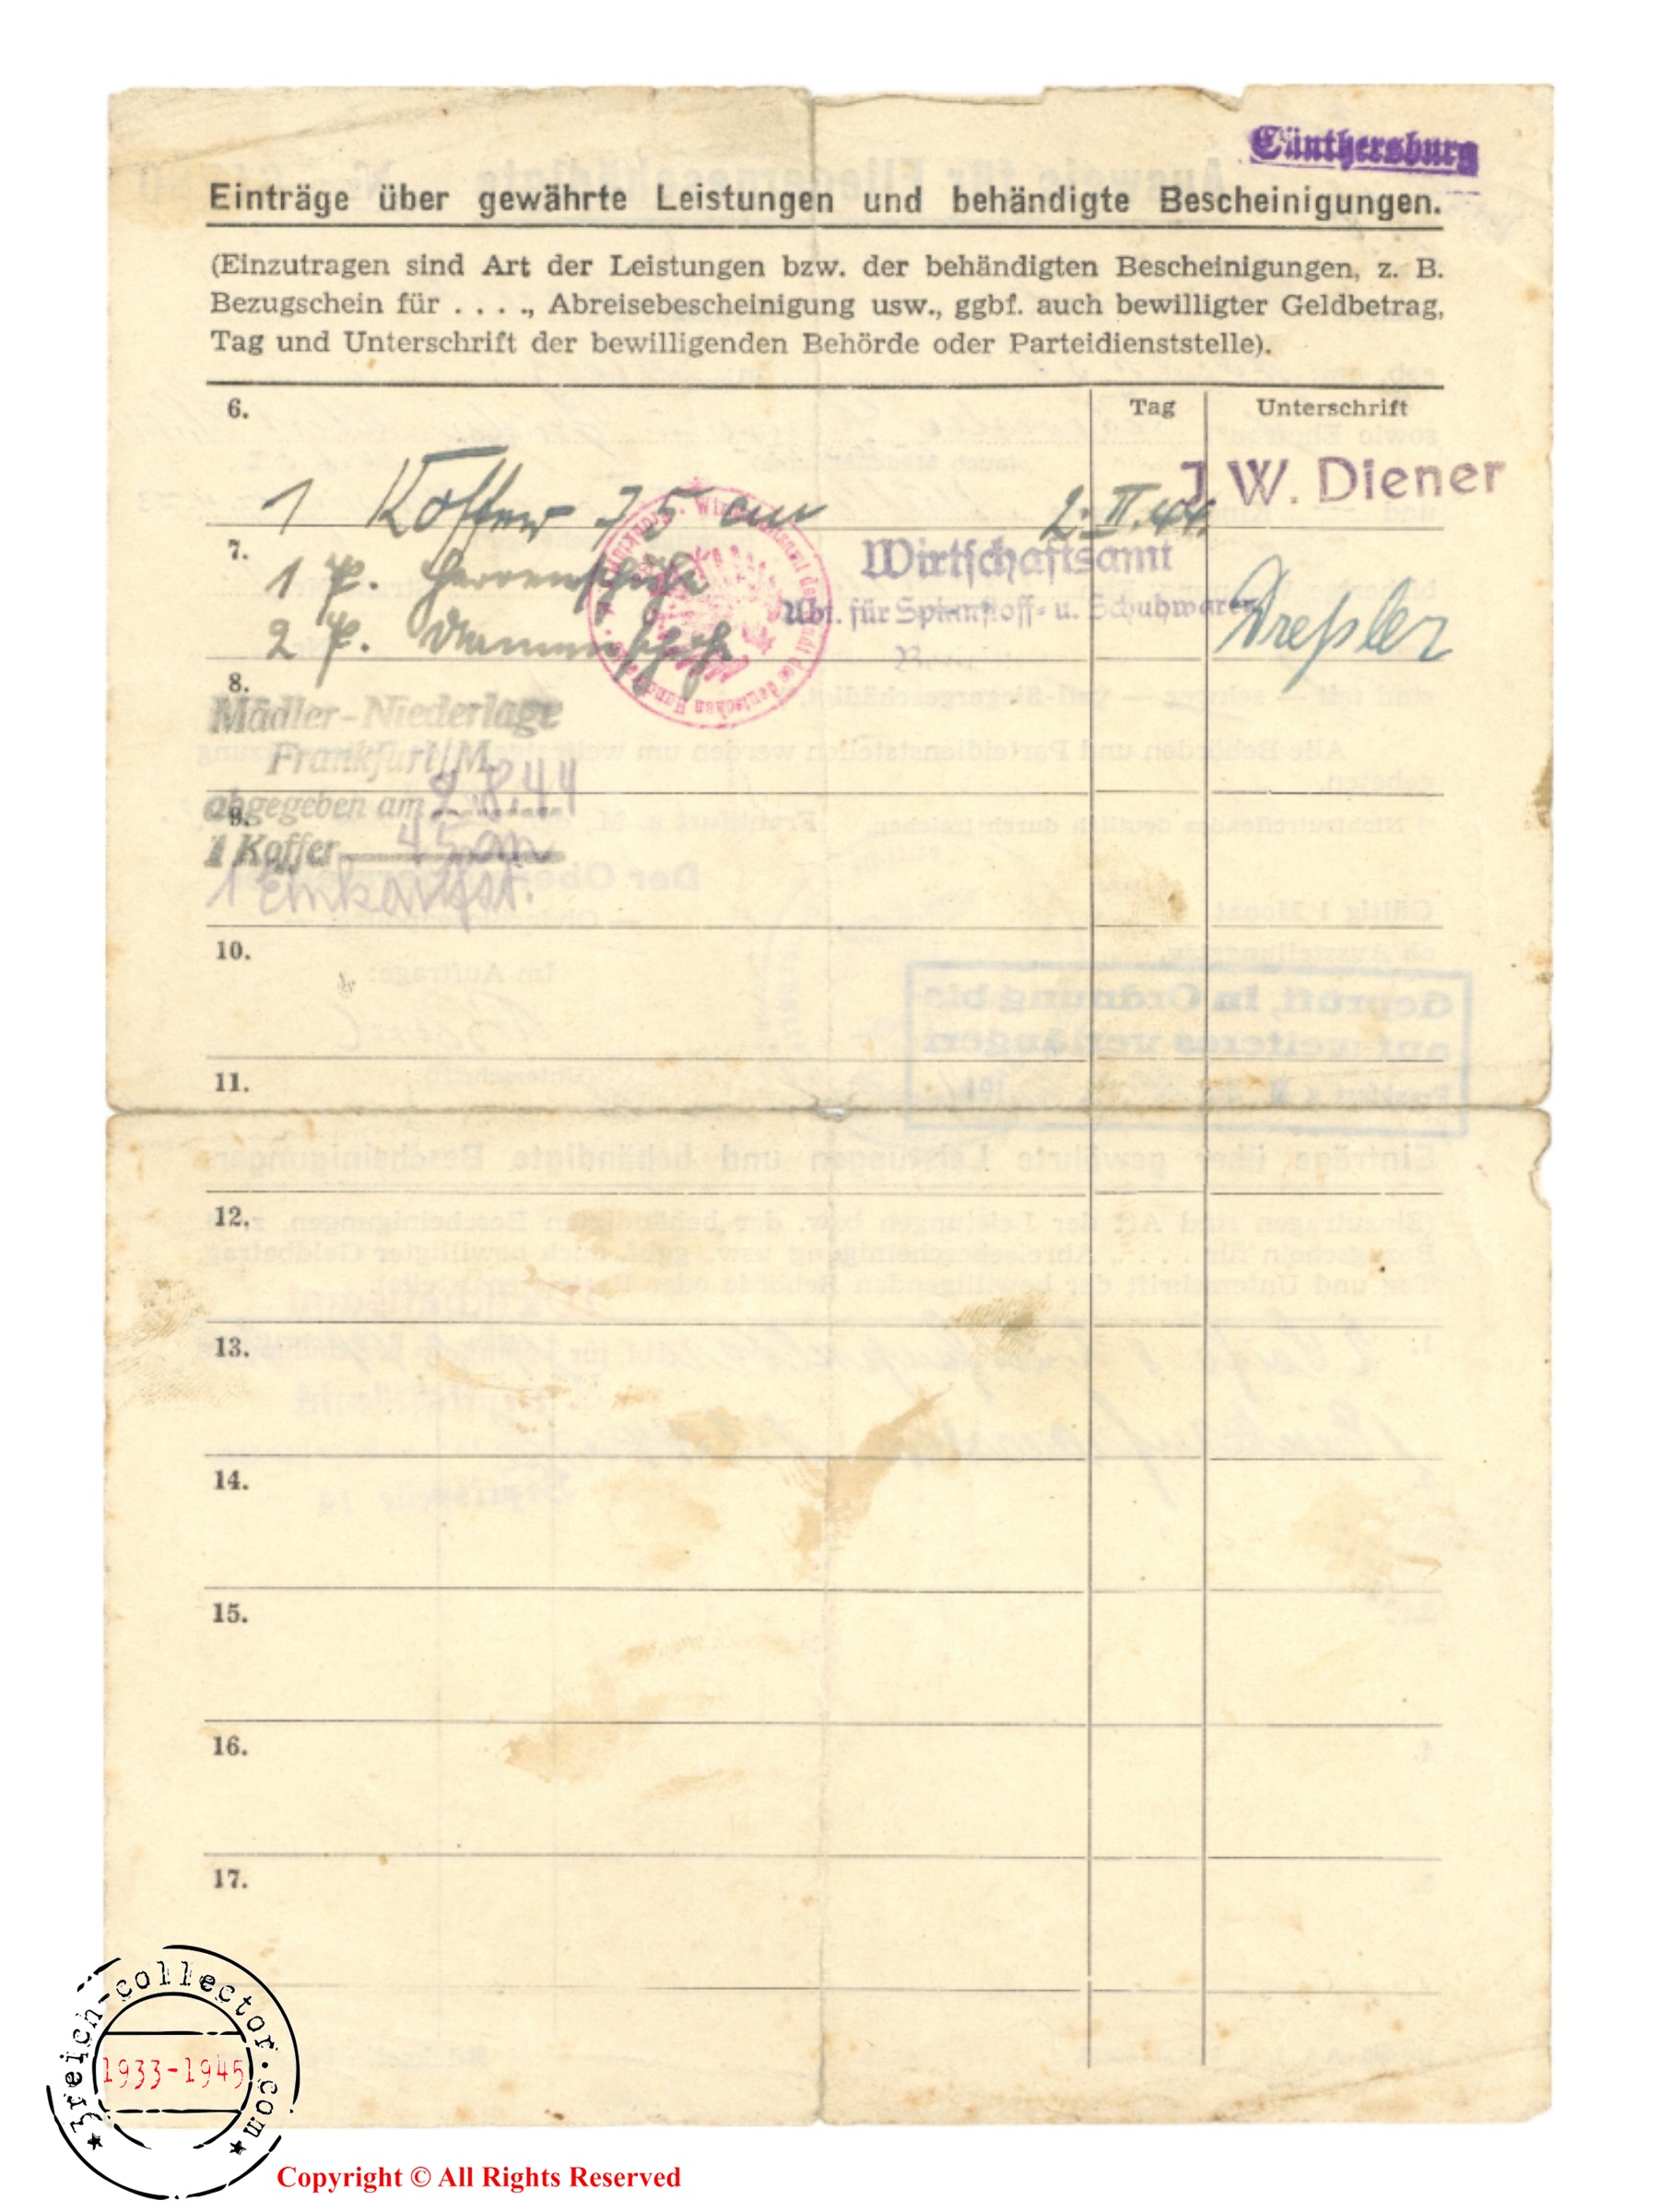 Günthersburg
Einträge über gewährte Leistungen und behändigte Bescheinigungen.
(Einzutragen sind Art der Leistungen bzw. der behändigten Bescheinigungen, z. B.
Bezugschein für . . . ., Abreisebescheinigung usw., ggbf. auch bewilligter Geldbetrag,
Tag und Unterschrift der bewilligenden Behörde oder Parteidienststelle).
6.
Tag
Unterschrift
J. W. Diener
1 Koffer 75 cm
2. II. 44.
7.
1 P. Herrenschuhe
Wirtschaftsamt
Abt. für Spinnstoff- u. Schuhwaren
2 P. Damenschuhe
Dreßler
8.
Mädler-Niederlage
Frankfurt/M.
abgegeben am 2.8.44
9.
1 Koffer 45 cm
1 Einkaufst.
10.
11.
12.
13.
14.
15.
16.
17.
3reich-collector.com
1933-1945
Copyright © All Rights Reserved